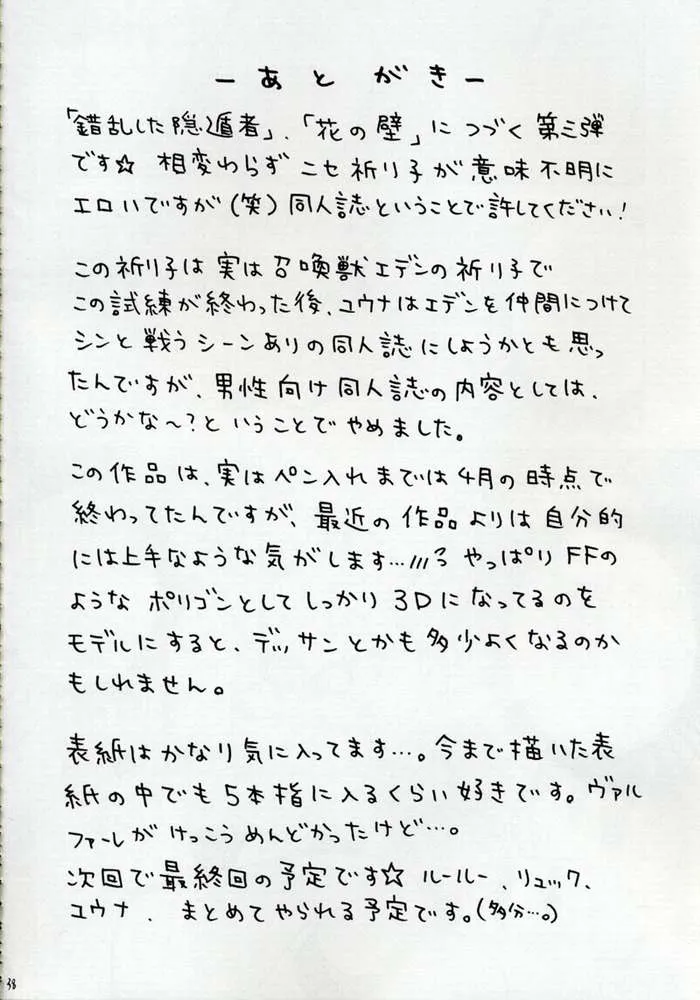 ーあとがきー
「錯乱した隠遁者」、「花の壁」につづく第三弾
です☆ 相変わらずニセ祈り子が意味不明に
エロいですが(笑)同人誌ということで許してください!
この祈り子は実は召喚獣エデンの祈り子で
この試練が終わった後、ユウナはエデンを仲間につけて
シンと戦うシーンありの同人誌にしようかとも思っ
たんですが、男性向け同人誌の内容としては、
どうかな〜?ということでやめました。
この作品は、実はペン入れまでは4月の時点で
終わってたんですが、最近の作品よりは自分的
には上手なような気がします…///ろ やっぱりFFの
ようなポリゴンとしてしっかり3Dになってるのを
モデルにすると、デッサンとかも多少よくなるのか
もしれません。
表紙はかなり気に入ってます…。今まで描いた表
紙の中でも5本指に入るくらい好きです。ヴァル
ファーレがけっこうめんどかったけど…。
次回で最終回の予定です☆ ルールー、リュック、
ユウナ、まとめてやられる予定です。(多分…。)
38